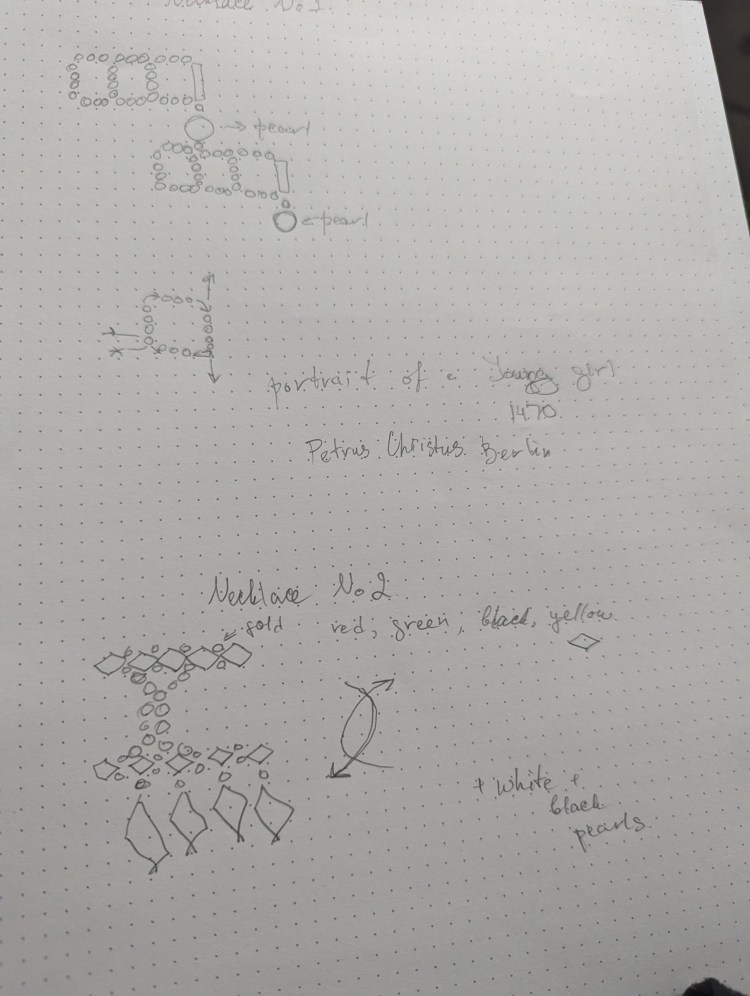 Necklace No 1
→ pearl
← pearl
portrait of a Young girl
1470
Petrus Christus Berlin
Necklace No 2
gold
red, green, black, yellow
+ white +
black
pearls